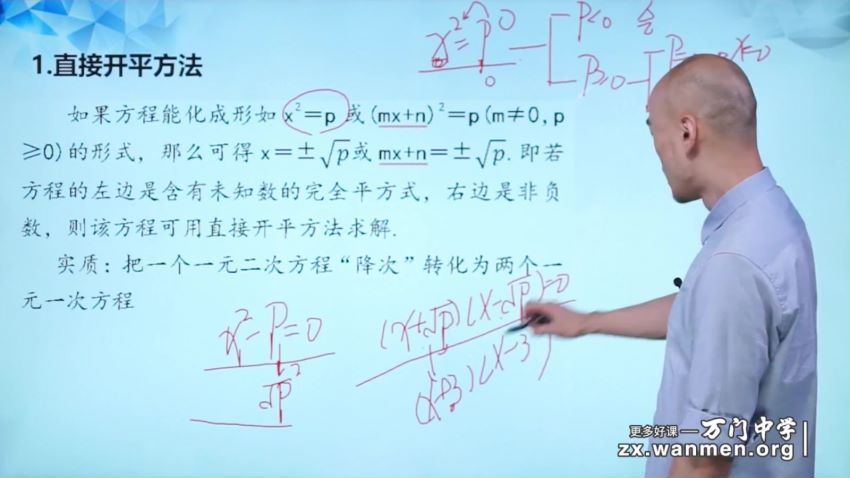 x²=p 0
0
P<0 无
P≥0
x=0
1.直接开平方法
如果方程能化成形如 x²=p 或(mx+n)²=p(m≠0,p
≥0)的形式，那么可得 x=±√p或 mx+n=±√p. 即若
方程的左边是含有未知数的完全平方式，右边是非负
数，则该方程可用直接开平方法求解.
实质：把一个一元二次方程“降次”转化为两个一
元一次方程
x²-P=0
√P²
(x+√P)(x-√P)=0
(x+3)(x-3)
更多好课—万门中学
zx.wanmen.org